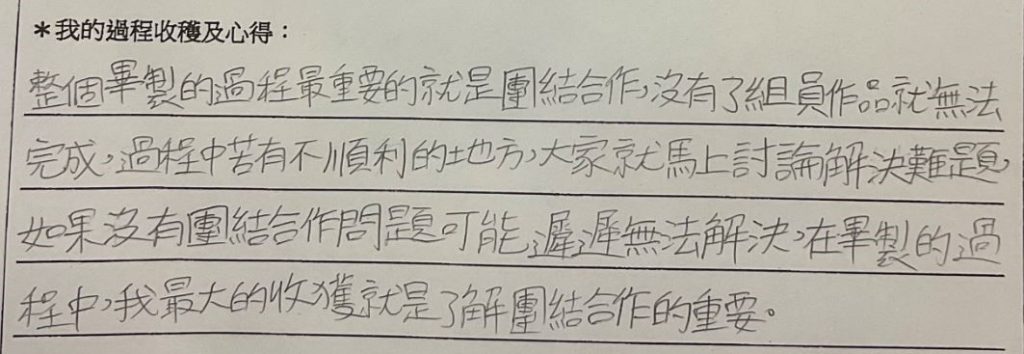 ＊我的過程收穫及心得：
整個畢製的過程最重要的就是團結合作，沒有了組員作品就無法
完成，過程中苦有不順利的地方，大家就馬上討論解決難題，
如果沒有團結合作問題可能遲遲無法解決，在畢製的過
程中，我最大的收獲就是了解團結合作的重要。